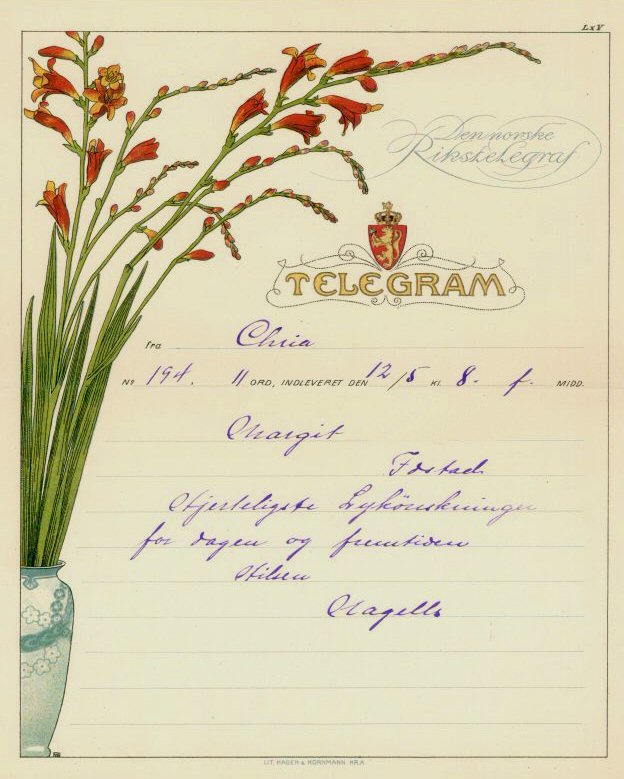 LxV
Den norske
Rikstelegraf
TELEGRAM
fra Chria
No 194. 11 ORD, INDLEVERET DEN 12/5 Kl. 8. f. MIDD.
Margit
Hjerteligste Lykönskninger
for dagen og fremtiden
Hilsen
Nagells
LIT. HAGEN & KORNMANN KR.A